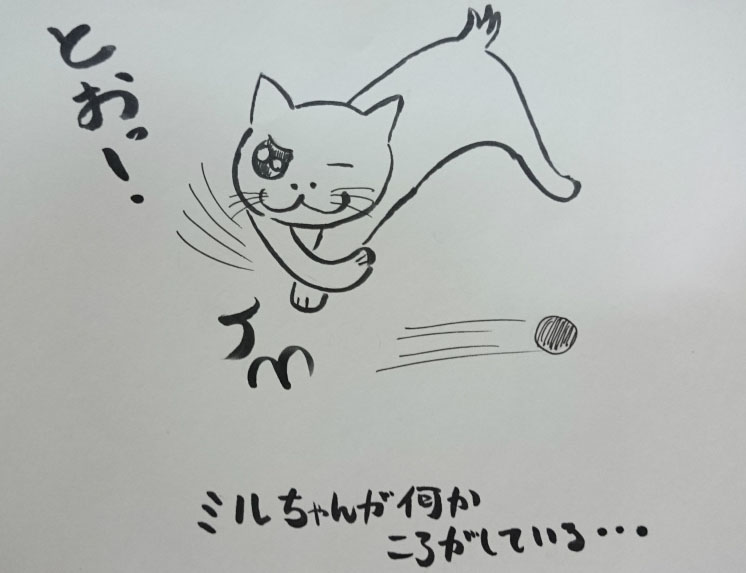 とおっ!
ミルちゃんが何か
ころがしている・・・